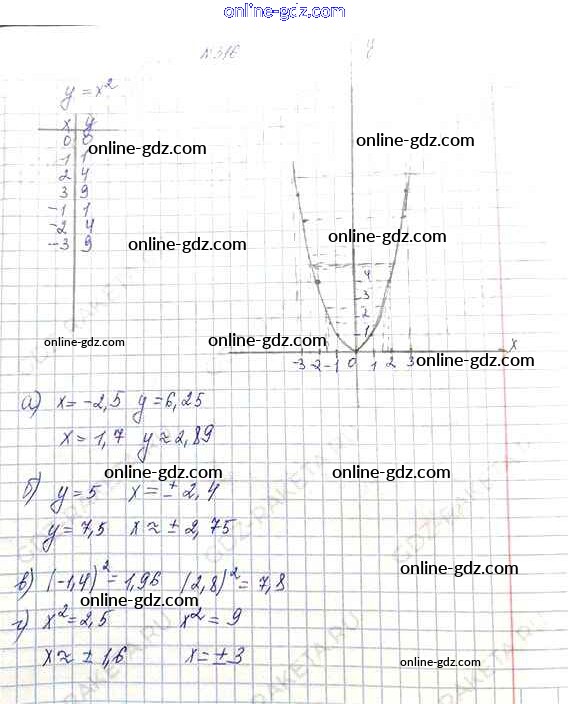 online-gdz.com
№316
y
y = x²
x y
0 0
1 1
2 4
3 9
-1 1
-2 4
-3 9
online-gdz.com
online-gdz.com
online-gdz.com
online-gdz.com
4
3
2
1
-3 -2 -1 0 1 2 3 x
online-gdz.com
online-gdz.com
online-gdz.com
а) x = -2,5 y = 6,25
x = 1,7 y ≈ 2,89
online-gdz.com
online-gdz.com
б) y = 5 x = ± 2,4
y = 7,5 x ≈ ± 2,75
GDZ-RAKETA.RU
GDZ-RAKETA.RU
online-gdz.com
в) (-1,4)² = 1,96 (2,8)² = 7,8
online-gdz.com
г) x² = 2,5 x² = 9
x ≈ ± 1,6 x = ± 3
online-gdz.com